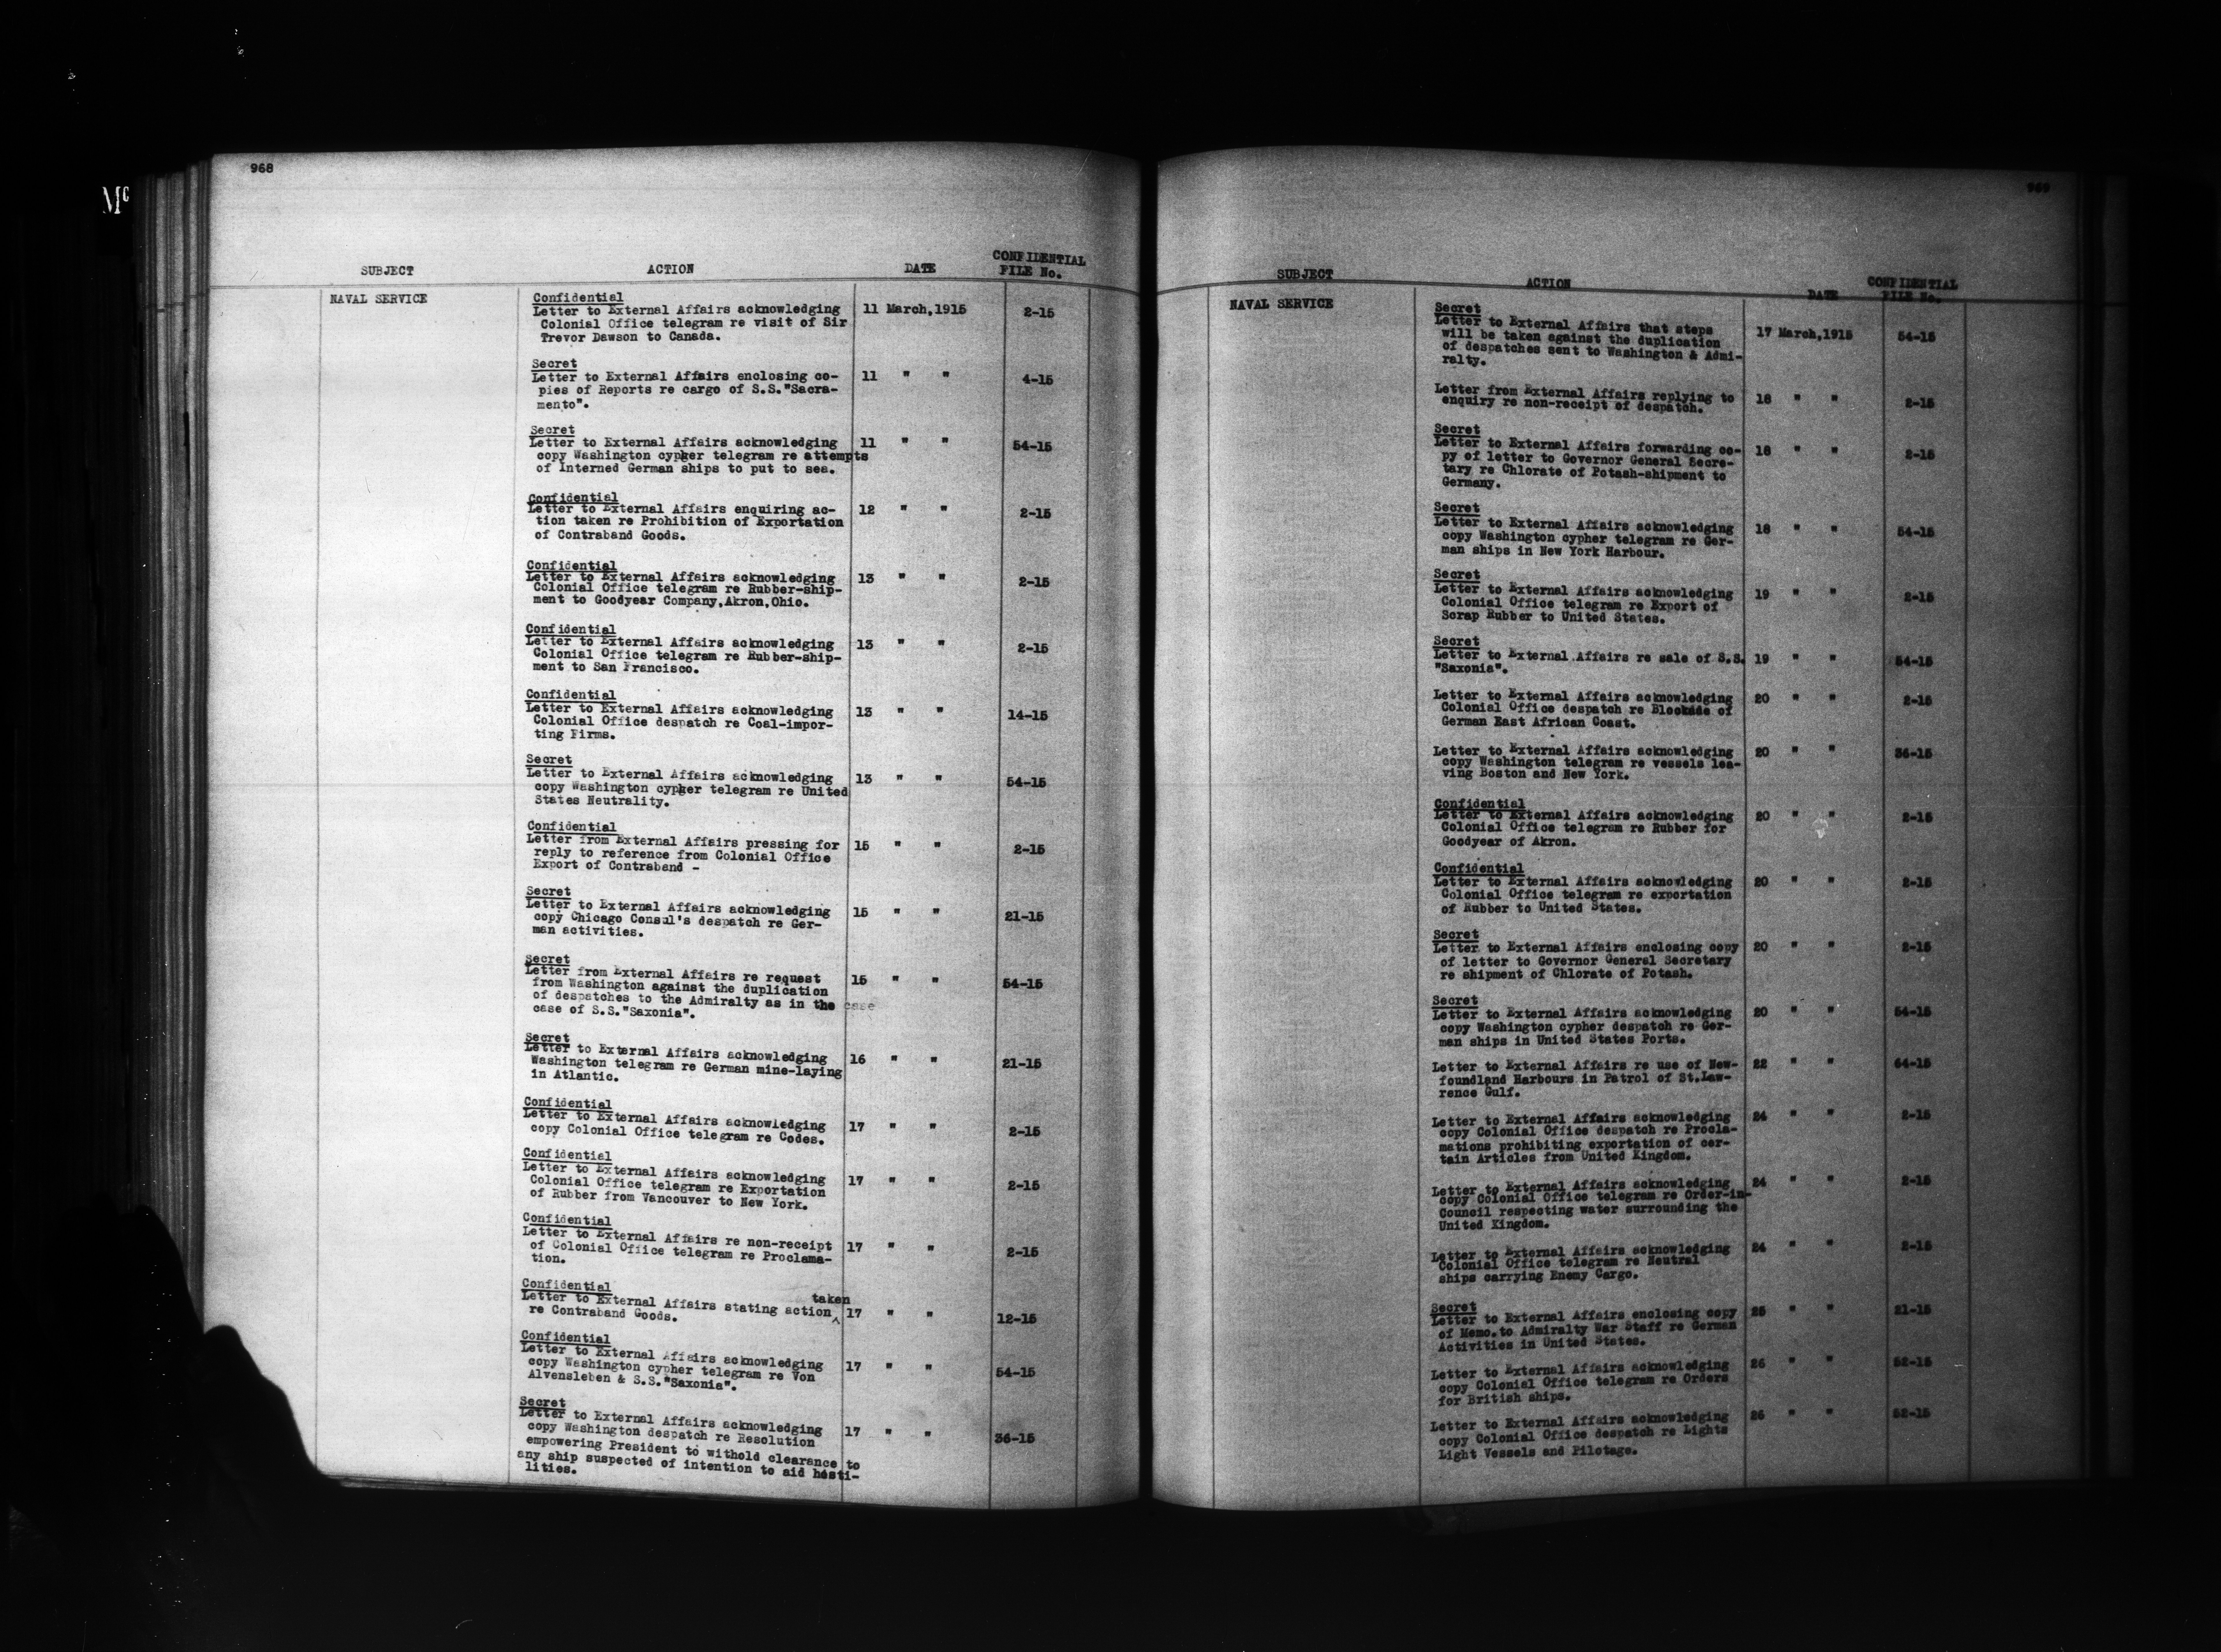 968
Mc
SUBJECT ACTION DATE CONFIDENTIAL FILE No.
NAVAL SERVICE
Confidential
Letter to External Affairs acknowledging 11 March,1915 2-15
Colonial Office telegram re visit of Sir
Trevor Dawson to Canada.
Secret
Letter to External Affairs enclosing co- 11 " " 4-15
pies of Reports re cargo of S.S."Sacra-
mento".
Secret
Letter to External Affairs acknowledging 11 " " 54-15
copy Washington cypher telegram re attempts
of Interned German ships to put to sea.
Confidential
Letter to External Affairs enquiring ac- 12 " " 2-15
tion taken re Prohibition of Exportation
of Contraband Goods.
Confidential
Letter to External Affairs acknowledging 13 " " 2-15
Colonial Office telegram re Rubber-ship-
ment to Goodyear Company,Akron,Ohio.
Confidential
Letter to External Affairs acknowledging 13 " " 2-15
Colonial Office telegram re Rubber-ship-
ment to San Francisco.
Confidential
Letter to External Affairs acknowledging 13 " " 14-15
Colonial Office despatch re Coal-impor-
ting Firms.
Secret
Letter to External Affairs acknowledging 13 " " 54-15
copy Washington cypher telegram re United
States Neutrality.
Confidential
Letter from External Affairs pressing for 15 " " 2-15
reply to reference from Colonial Office
Export of Contraband -
Secret
Letter to External Affairs acknowledging 15 " " 21-15
copy Chicago Consul's despatch re Ger-
man activities.
Secret
Letter from External Affairs re request 15 " " 54-15
from Washington against the duplication
of despatches to the Admiralty as in the case
case of S.S."Saxonia".
Secret
Letter to External Affairs acknowledging 16 " " 21-15
Washington telegram re German mine-laying
in Atlantic.
Confidential
Letter to External Affairs acknowledging 17 " " 2-15
copy Colonial Office telegram re Codes.
Confidential
Letter to External Affairs acknowledging 17 " " 2-15
Colonial Office telegram re Exportation
of Rubber from Vancouver to New York.
Confidential
Letter to External Affairs re non-receipt 17 " " 2-15
of Colonial Office telegram re Proclama-
tion.
Confidential
taken
Letter to External Affairs stating action 17 " " 12-15
re Contraband Goods.
Confidential
Letter to External Affairs acknowledging 17 " " 54-15
copy Washington cypher telegram re Von
Alvensleben & S.S."Saxonia".
Secret
Letter to External Affairs acknowledging 17 " " 36-15
copy Washington despatch re Resolution
empowering President to withold clearance to
any ship suspected of intention to aid hosti-
lities.
969
SUBJECT ACTION DATE CONFIDENTIAL FILE No.
NAVAL SERVICE
Secret
Letter to External Affairs that steps 17 March,1915 54-15
will be taken against the duplication
of despatches sent to Washington & Admi-
ralty.
Letter from External Affairs replying to 18 " " 2-15
enquiry re non-receipt of despatch.
Secret
Letter to External Affairs forwarding co- 18 " " 2-15
py of letter to Governor General Secre-
tary re Chlorate of Potash-shipment to
Germany.
Secret
Letter to External Affairs acknowledging 18 " " 54-15
copy Washington cypher telegram re Ger-
man ships in New York Harbour.
Secret
Letter to External Affairs acknowledging 19 " " 2-15
Colonial Office telegram re Export of
Scrap Rubber to United States.
Secret
Letter to External Affairs re sale of S.S. 19 " " 54-15
"Saxonia".
Letter to External Affairs acknowledging 20 " " 2-15
Colonial Office despatch re Blockade of
German East African Coast.
Letter to External Affairs acknowledging 20 " " 36-15
copy Washington telegram re vessels lea-
ving Boston and New York.
Confidential
Letter to External Affairs acknowledging 20 " " 2-15
Colonial Office telegram re Rubber for
Goodyear of Akron.
Confidential
Letter to External Affairs acknowledging 20 " " 2-15
Colonial Office telegram re exportation
of Rubber to United States.
Secret
Letter to External Affairs enclosing copy 20 " " 2-15
of letter to Governor General Secretary
re shipment of Chlorate of Potash.
Secret
Letter to External Affairs acknowledging 20 " " 54-15
copy Washington cypher despatch re Ger-
man ships in United States Ports.
Letter to External Affairs re use of New- 22 " " 64-15
foundland Harbours in Patrol of St.Law-
rence Gulf.
Letter to External Affairs acknowledging 24 " " 2-15
copy Colonial Office despatch re Procla-
mations prohibiting exportation of cer-
tain Articles from United Kingdom.
Letter to External Affairs acknowledging 24 " " 2-15
copy Colonial Office telegram re Order-in-
Council respecting water surrounding the
United Kingdom.
Letter to External Affairs acknowledging 24 " " 2-15
Colonial Office telegram re Neutral
ships carrying Enemy Cargo.
Secret
Letter to External Affairs enclosing copy 25 " " 21-15
of Memo.to Admiralty War Staff re German
Activities in United States.
Letter to External Affairs acknowledging 26 " " 52-15
copy Colonial Office telegram re Orders
for British ships.
Letter to External Affairs acknowledging 26 " " 52-15
copy Colonial Office despatch re Lights
Light Vessels and Pilotage.